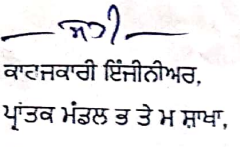 ਸਹੀ
ਕਾਰਜਕਾਰੀ ਇੰਜੀਨੀਅਰ,
ਪ੍ਰਾਂਤਕ ਮੰਡਲ ਭ ਤੇ ਮ ਸ਼ਾਖਾ,